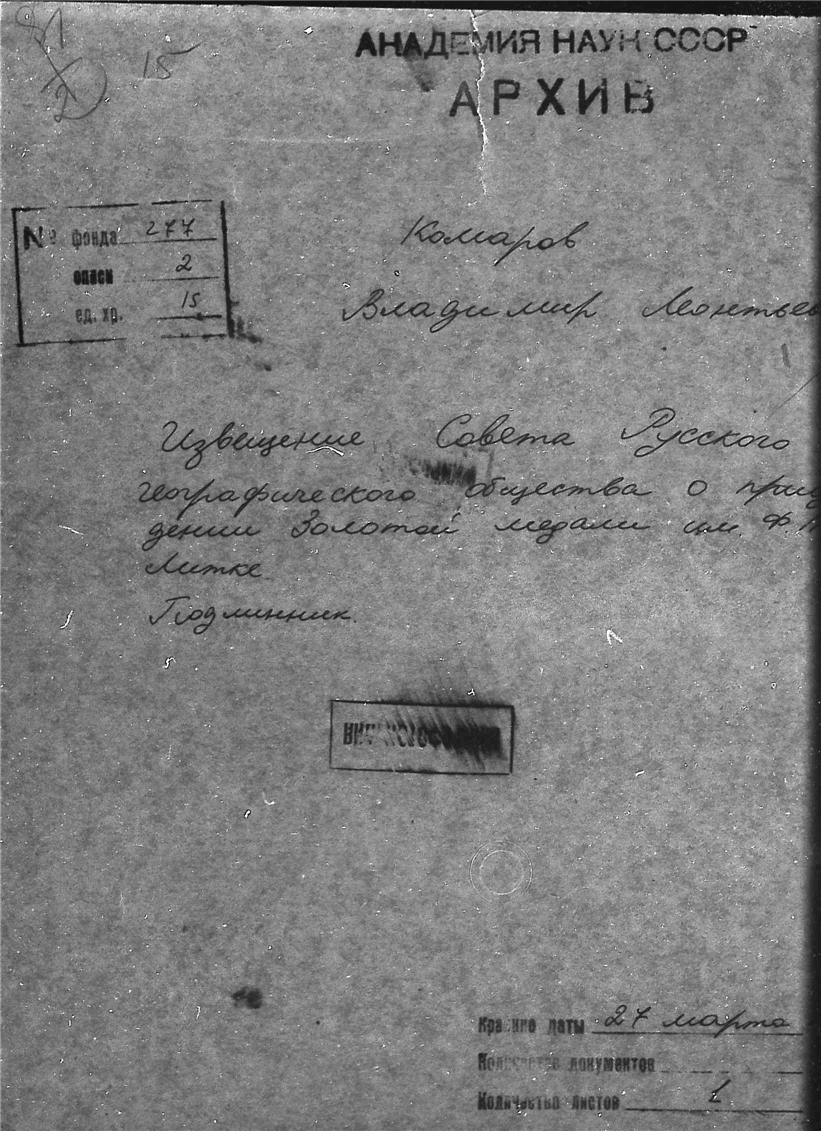 15
АКАДЕМИЯ НАУК СССР
АРХИВ
№ фонда 277
описи 2
ед. хр. 15
Комаров
Владимир Леонтьев
Извещение Совета Русского
географического общества о присуж
дении Золотой медали им. Ф.П
Литке
Подлинник.
Крайние даты 27 марта
Количество документов
Количество листов 1